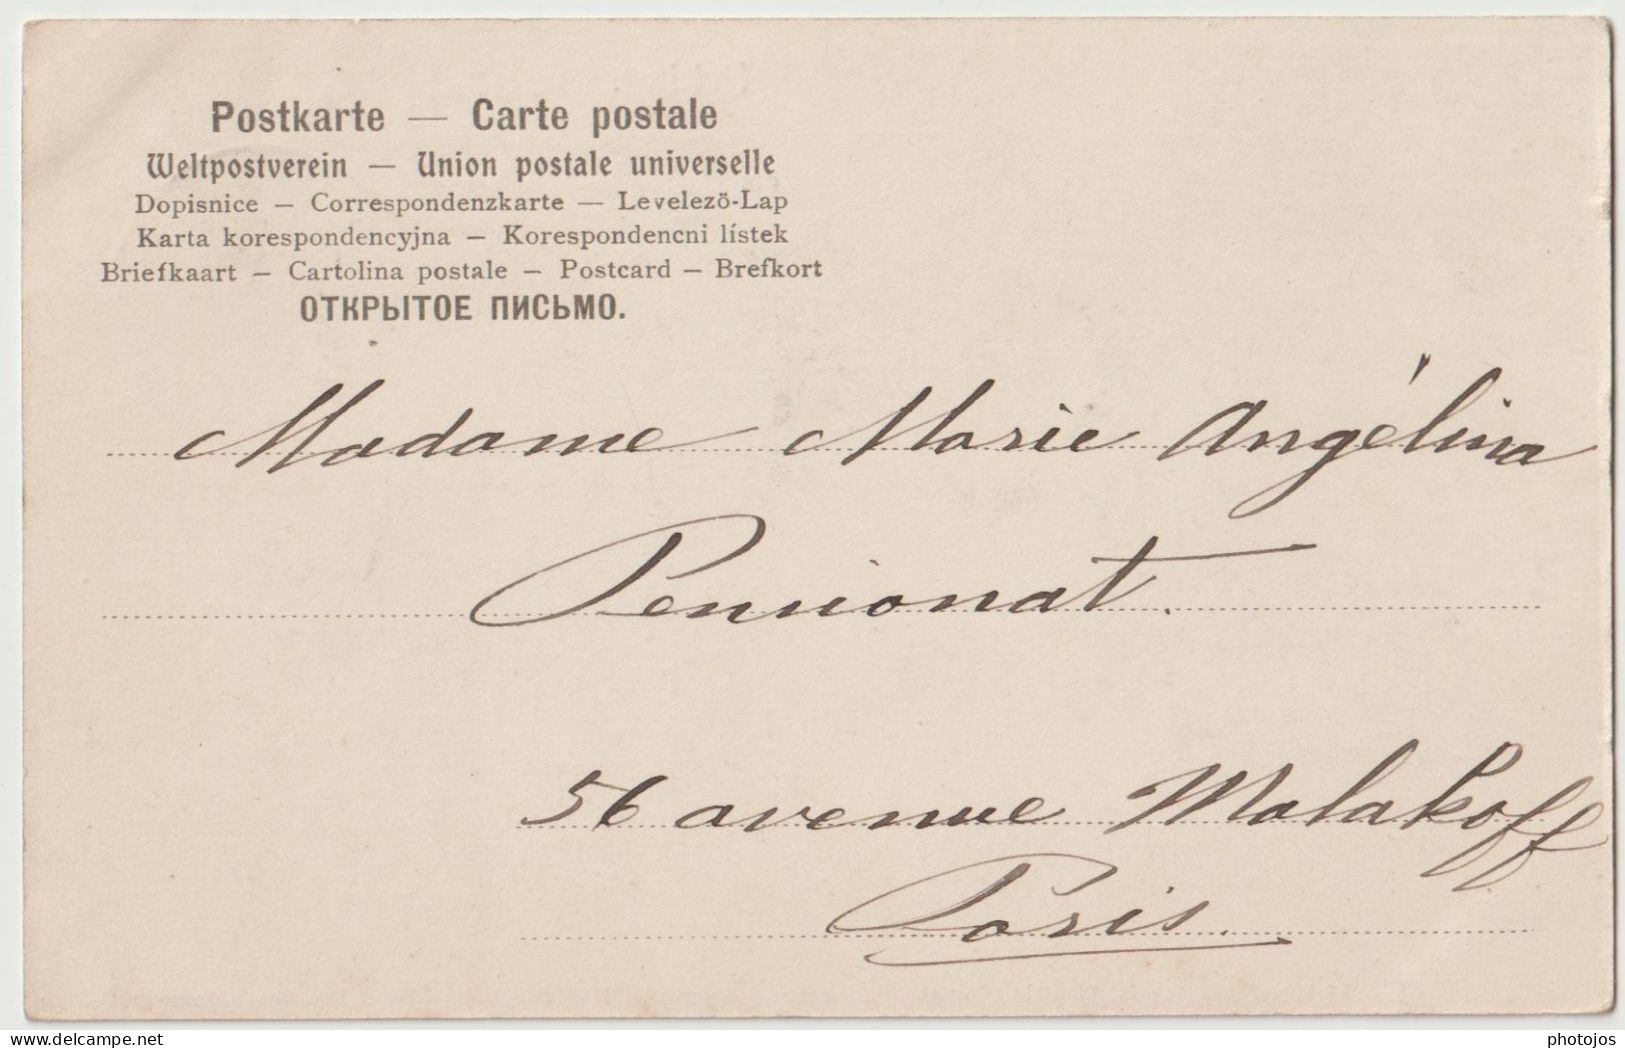 Postkarte — Carte postale
Weltpostverein — Union postale universelle
Dopisnice — Correspondenzkarte — Levelezö-Lap
Karta korespondencyjna — Korespondencni lístek
Briefkaart — Cartolina postale — Postcard — Brefkort
ОТКРЫТОЕ ПИСЬМО.
Madame Marie Angélina
Pensionat.
56 avenue Malakoff
Paris.
delcampe.net
photojos